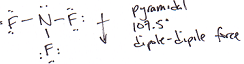 F-N-F
F
pyramidal
109.5°
dipole-dipole force